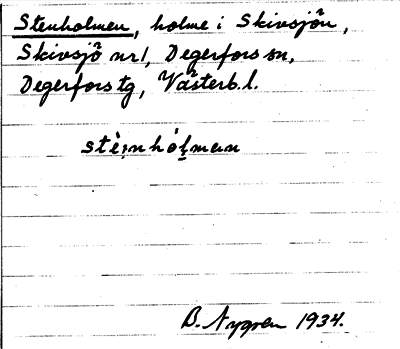 Stenholmen, holme i Skivsjön,
Skivsjö nr 1, Degerfors sn,
Degerfors tg, Västerb. l.
stèi̯nhól̥man
B. Nygren 1934.